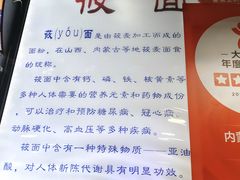 莜面
莜(yóu)面是由莜麦加工而成的
面粉，在山西、内蒙古等地莜麦面食
的统称。
莜面中含有钙、磷、铁、核黄素等
多种人体需要的营养元素和药物成份，
可以治疗和预防糖尿病、冠心病、
动脉硬化、高血压等多种疾病。
莜面中含有一种特殊物质——亚油
酸，对人体新陈代谢具有明显功效。
大
年度